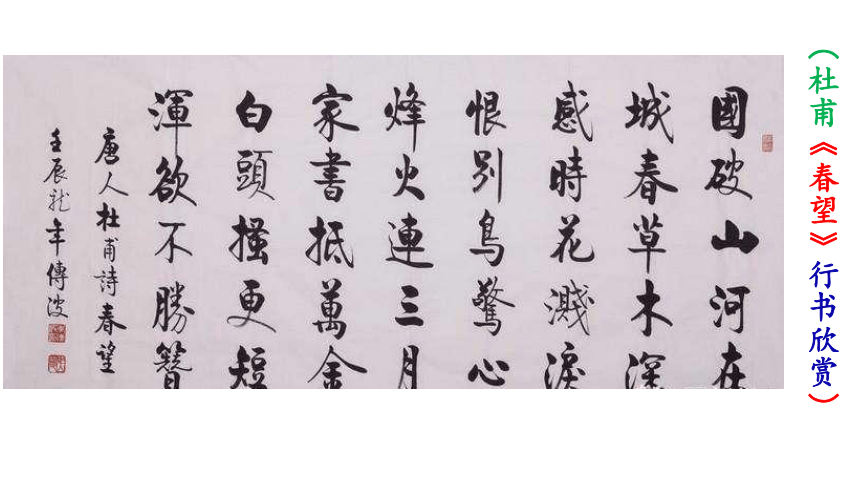 (杜甫《春望》行书欣赏)
國破山河在
城春草木深
感時花濺淚
恨別鳥驚心
烽火連三月
家書抵萬金
白頭搔更短
渾欲不勝簪
唐人杜甫詩春望
壬辰龍年傳波